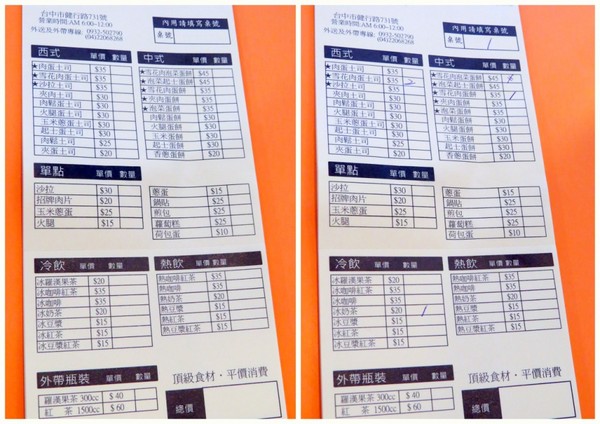 台中市健行路731號
營業時間:AM 6:00~12:00
外送及外帶專線: 0932-502790
(04)22068268
內用請填寫桌號
桌號
西式 單價 數量
★肉蛋土司 $35
★雪花肉蛋土司 $35
★沙拉土司 $35
夾肉土司 $30
肉鬆蛋土司 $30
火腿蛋土司 $30
玉米蔥蛋土司 $30
起士蛋土司 $30
夾蛋土司 $20
中式 單價 數量
★雪花肉泡菜蛋餅 $45
★泡菜起士蛋餅 $45
★雪花肉蛋餅 $35
★夾肉蛋餅 $35
★泡菜蛋餅 $35
肉鬆蛋餅 $30
火腿蛋餅 $30
起士蛋餅 $30
香蔥蛋餅 $20
單點 單價 數量
沙拉 $30
招牌肉片 $20
玉米蔥蛋 $25
火腿 $15
蔥蛋 $15
鍋貼 $25
煎包 $25
蘿蔔糕 $25
荷包蛋 $10
冷飲 單價 數量
冰羅漢果茶 $20
冰咖啡紅茶 $35
冰咖啡 $35
冰奶茶 $20
冰豆漿 $15
冰紅茶 $15
冰豆漿紅茶 $15
熱飲 單價 數量
熱咖啡紅茶 $35
熱咖啡 $35
熱奶茶 $20
熱豆漿 $15
熱紅茶 $15
熱豆漿紅茶 $15
外帶瓶裝 單價 數量
羅漢果茶 300cc $40
紅 茶 1500cc $60
頂級食材・平價消費
總價
台中市健行路731號
營業時間:AM 6:00~12:00
外送及外帶專線: 0932-502790
(04)22068268
內用請填寫桌號
桌號 1
西式 單價 數量
★肉蛋土司 $35
★雪花肉蛋土司 $35 2
★沙拉土司 $35
夾肉土司 $30
肉鬆蛋土司 $30
火腿蛋土司 $30
玉米蔥蛋土司 $30
起士蛋土司 $30
夾蛋土司 $20
中式 單價 數量
★雪花肉泡菜蛋餅 $45
★泡菜起士蛋餅 $45
★雪花肉蛋餅 $35 1
★夾肉蛋餅 $35
★泡菜蛋餅 $35
肉鬆蛋餅 $30
火腿蛋餅 $30
起士蛋餅 $30
香蔥蛋餅 $20
單點 單價 數量
沙拉 $30
招牌肉片 $20
玉米蔥蛋 $25
火腿 $15
蔥蛋 $15
鍋貼 $25
煎包 $25
蘿蔔糕 $25
荷包蛋 $10
冷飲 單價 數量
冰羅漢果茶 $20
冰咖啡紅茶 $35
冰咖啡 $35
冰奶茶 $20 1
冰豆漿 $15
冰紅茶 $15
冰豆漿紅茶 $15
熱飲 單價 數量
熱咖啡紅茶 $35
熱咖啡 $35
熱奶茶 $20
熱豆漿 $15
熱紅茶 $15
熱豆漿紅茶 $15
外帶瓶裝 單價 數量
羅漢果茶 300cc $40
紅 茶 1500cc $60
頂級食材・平價消費
總價